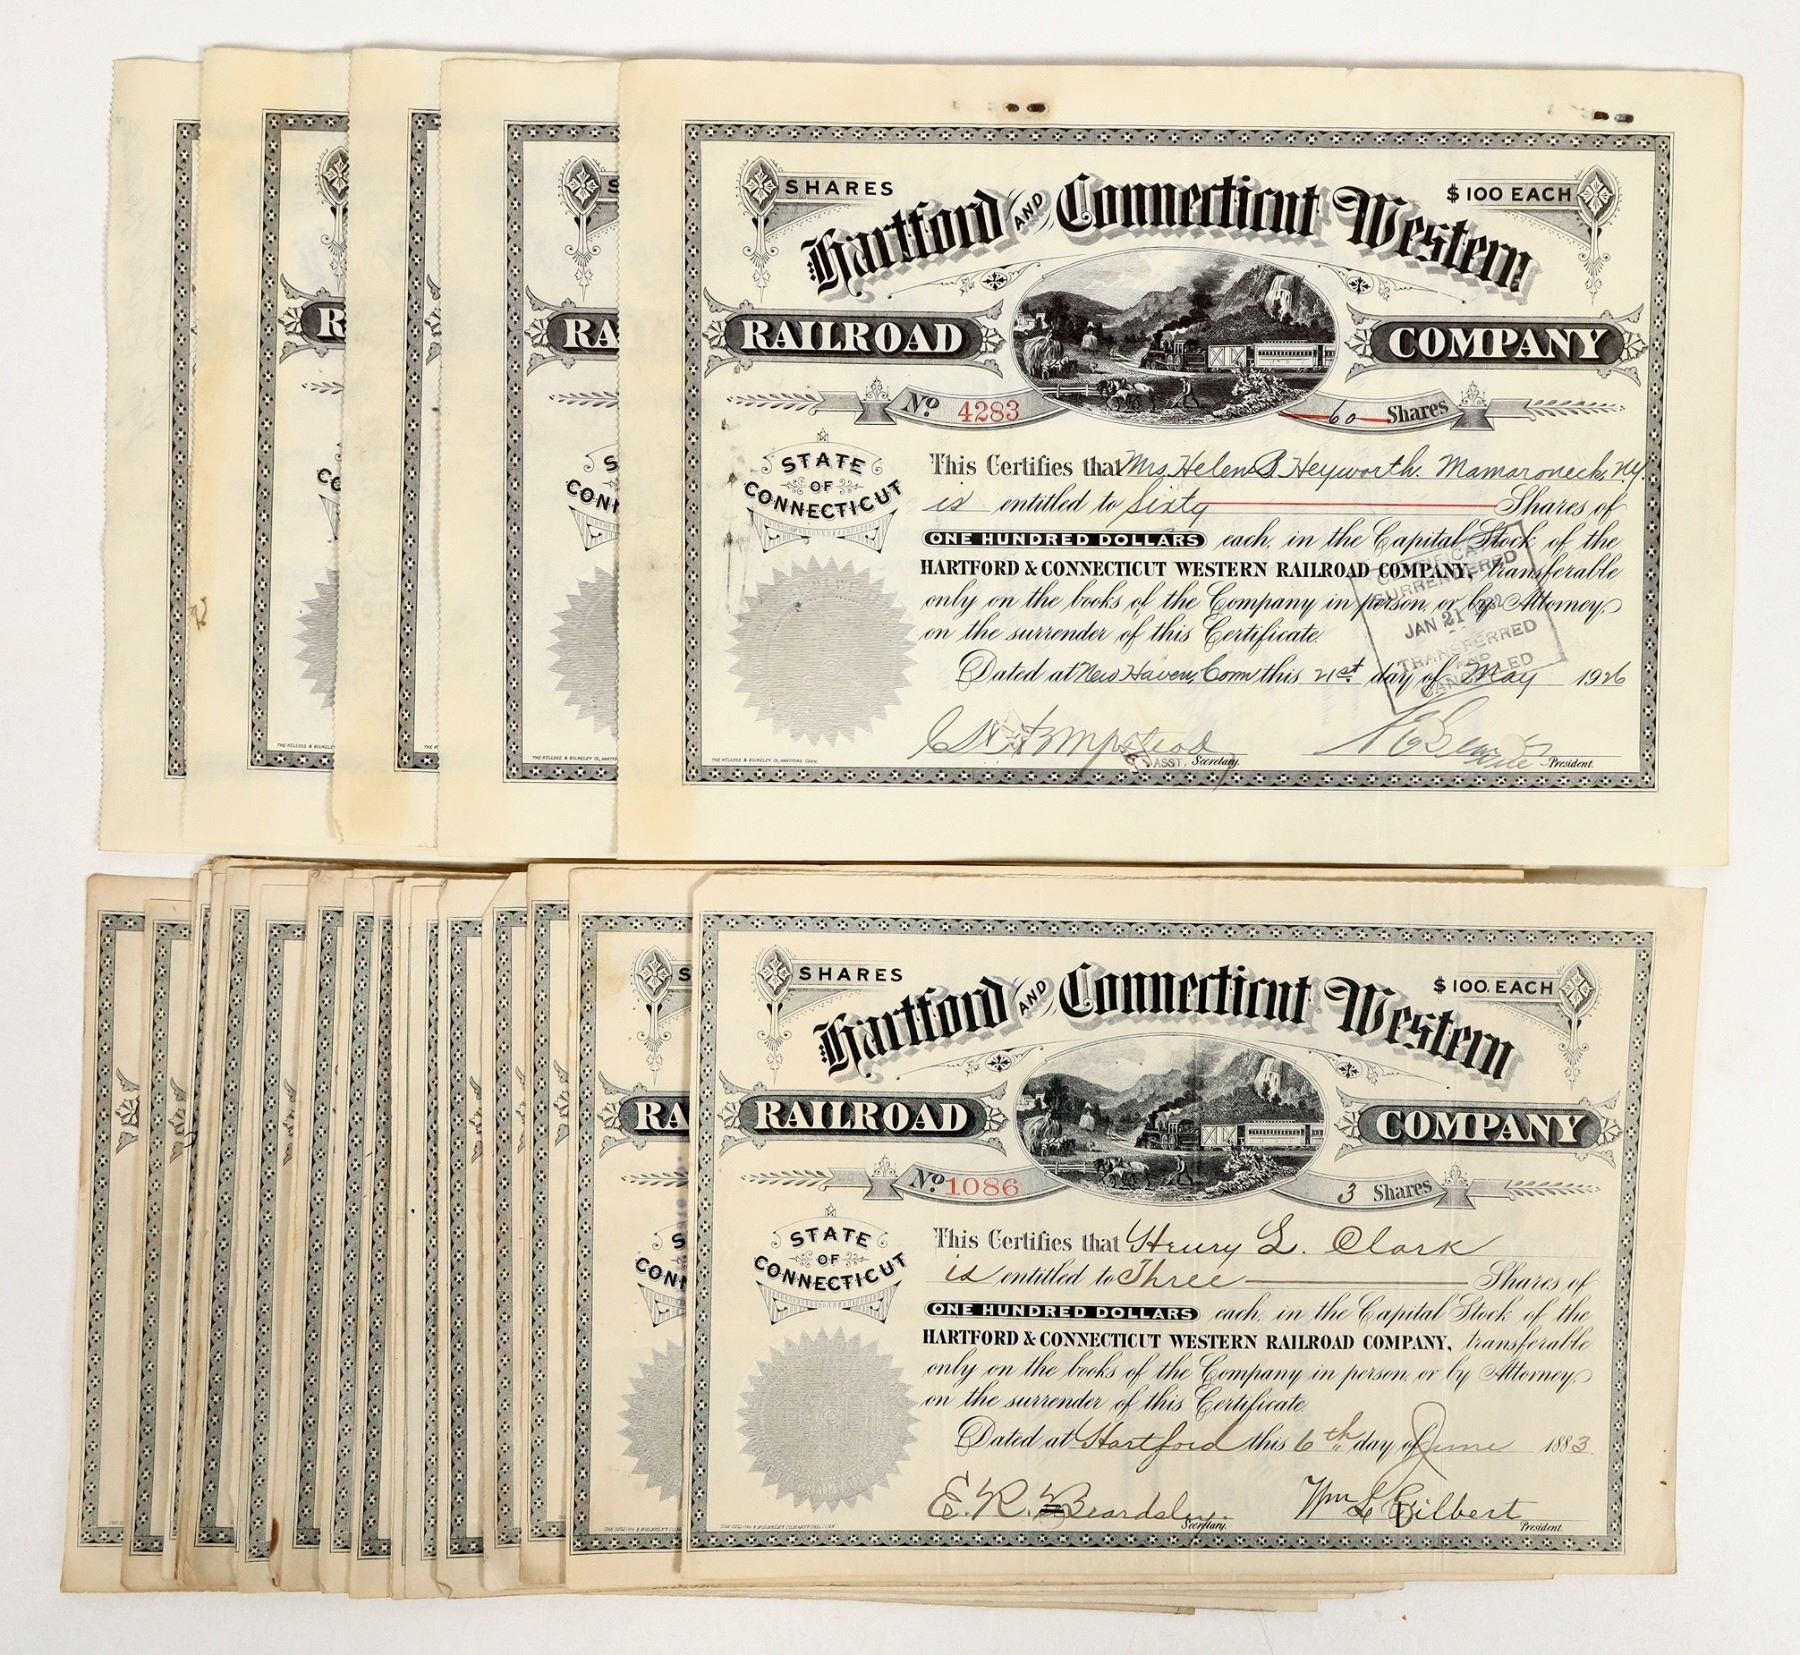 SHARES
$100 EACH
Hartford AND Connecticut Western
RAILROAD COMPANY
No 4283
60 Shares
STATE
OF
CONNECTICUT
This Certifies that Mrs. Helen S. Heyworth. Mamaroneck, N.Y.
is entitled to Sixty Shares of
ONE HUNDRED DOLLARS each, in the Capital Stock of the
HARTFORD & CONNECTICUT WESTERN RAILROAD COMPANY, transferable
only on the books of the Company in person, or by Attorney,
on the surrender of this Certificate.
Dated at New Haven, Conn this 21st day of May 1926
SURRENDERED
JAN 21 1932
TRANSFERRED
AND
CANCELLED
ASST. Secretary.
Vice President.
THE KELLOGG & BULKELEY CO., HARTFORD, CONN.
S
RA
R
S
CONN
CO
THE KELLOGG & BULKELEY CO., HARTF
THE KELLOGG & BULKELEY
SHARES
$100. EACH
Hartford AND Connecticut Western
RAILROAD COMPANY
No 1086
3 Shares
STATE
OF
CONNECTICUT
This Certifies that Henry L. Clark
is entitled to Three Shares of
ONE HUNDRED DOLLARS each, in the Capital Stock of the
HARTFORD & CONNECTICUT WESTERN RAILROAD COMPANY, transferable
only on the books of the Company in person, or by Attorney,
on the surrender of this Certificate.
Dated at Hartford this 6th day of June 1883
E. R. Beardsley
Secretary.
Wm L Gilbert
President.
S
RA
S
CONN